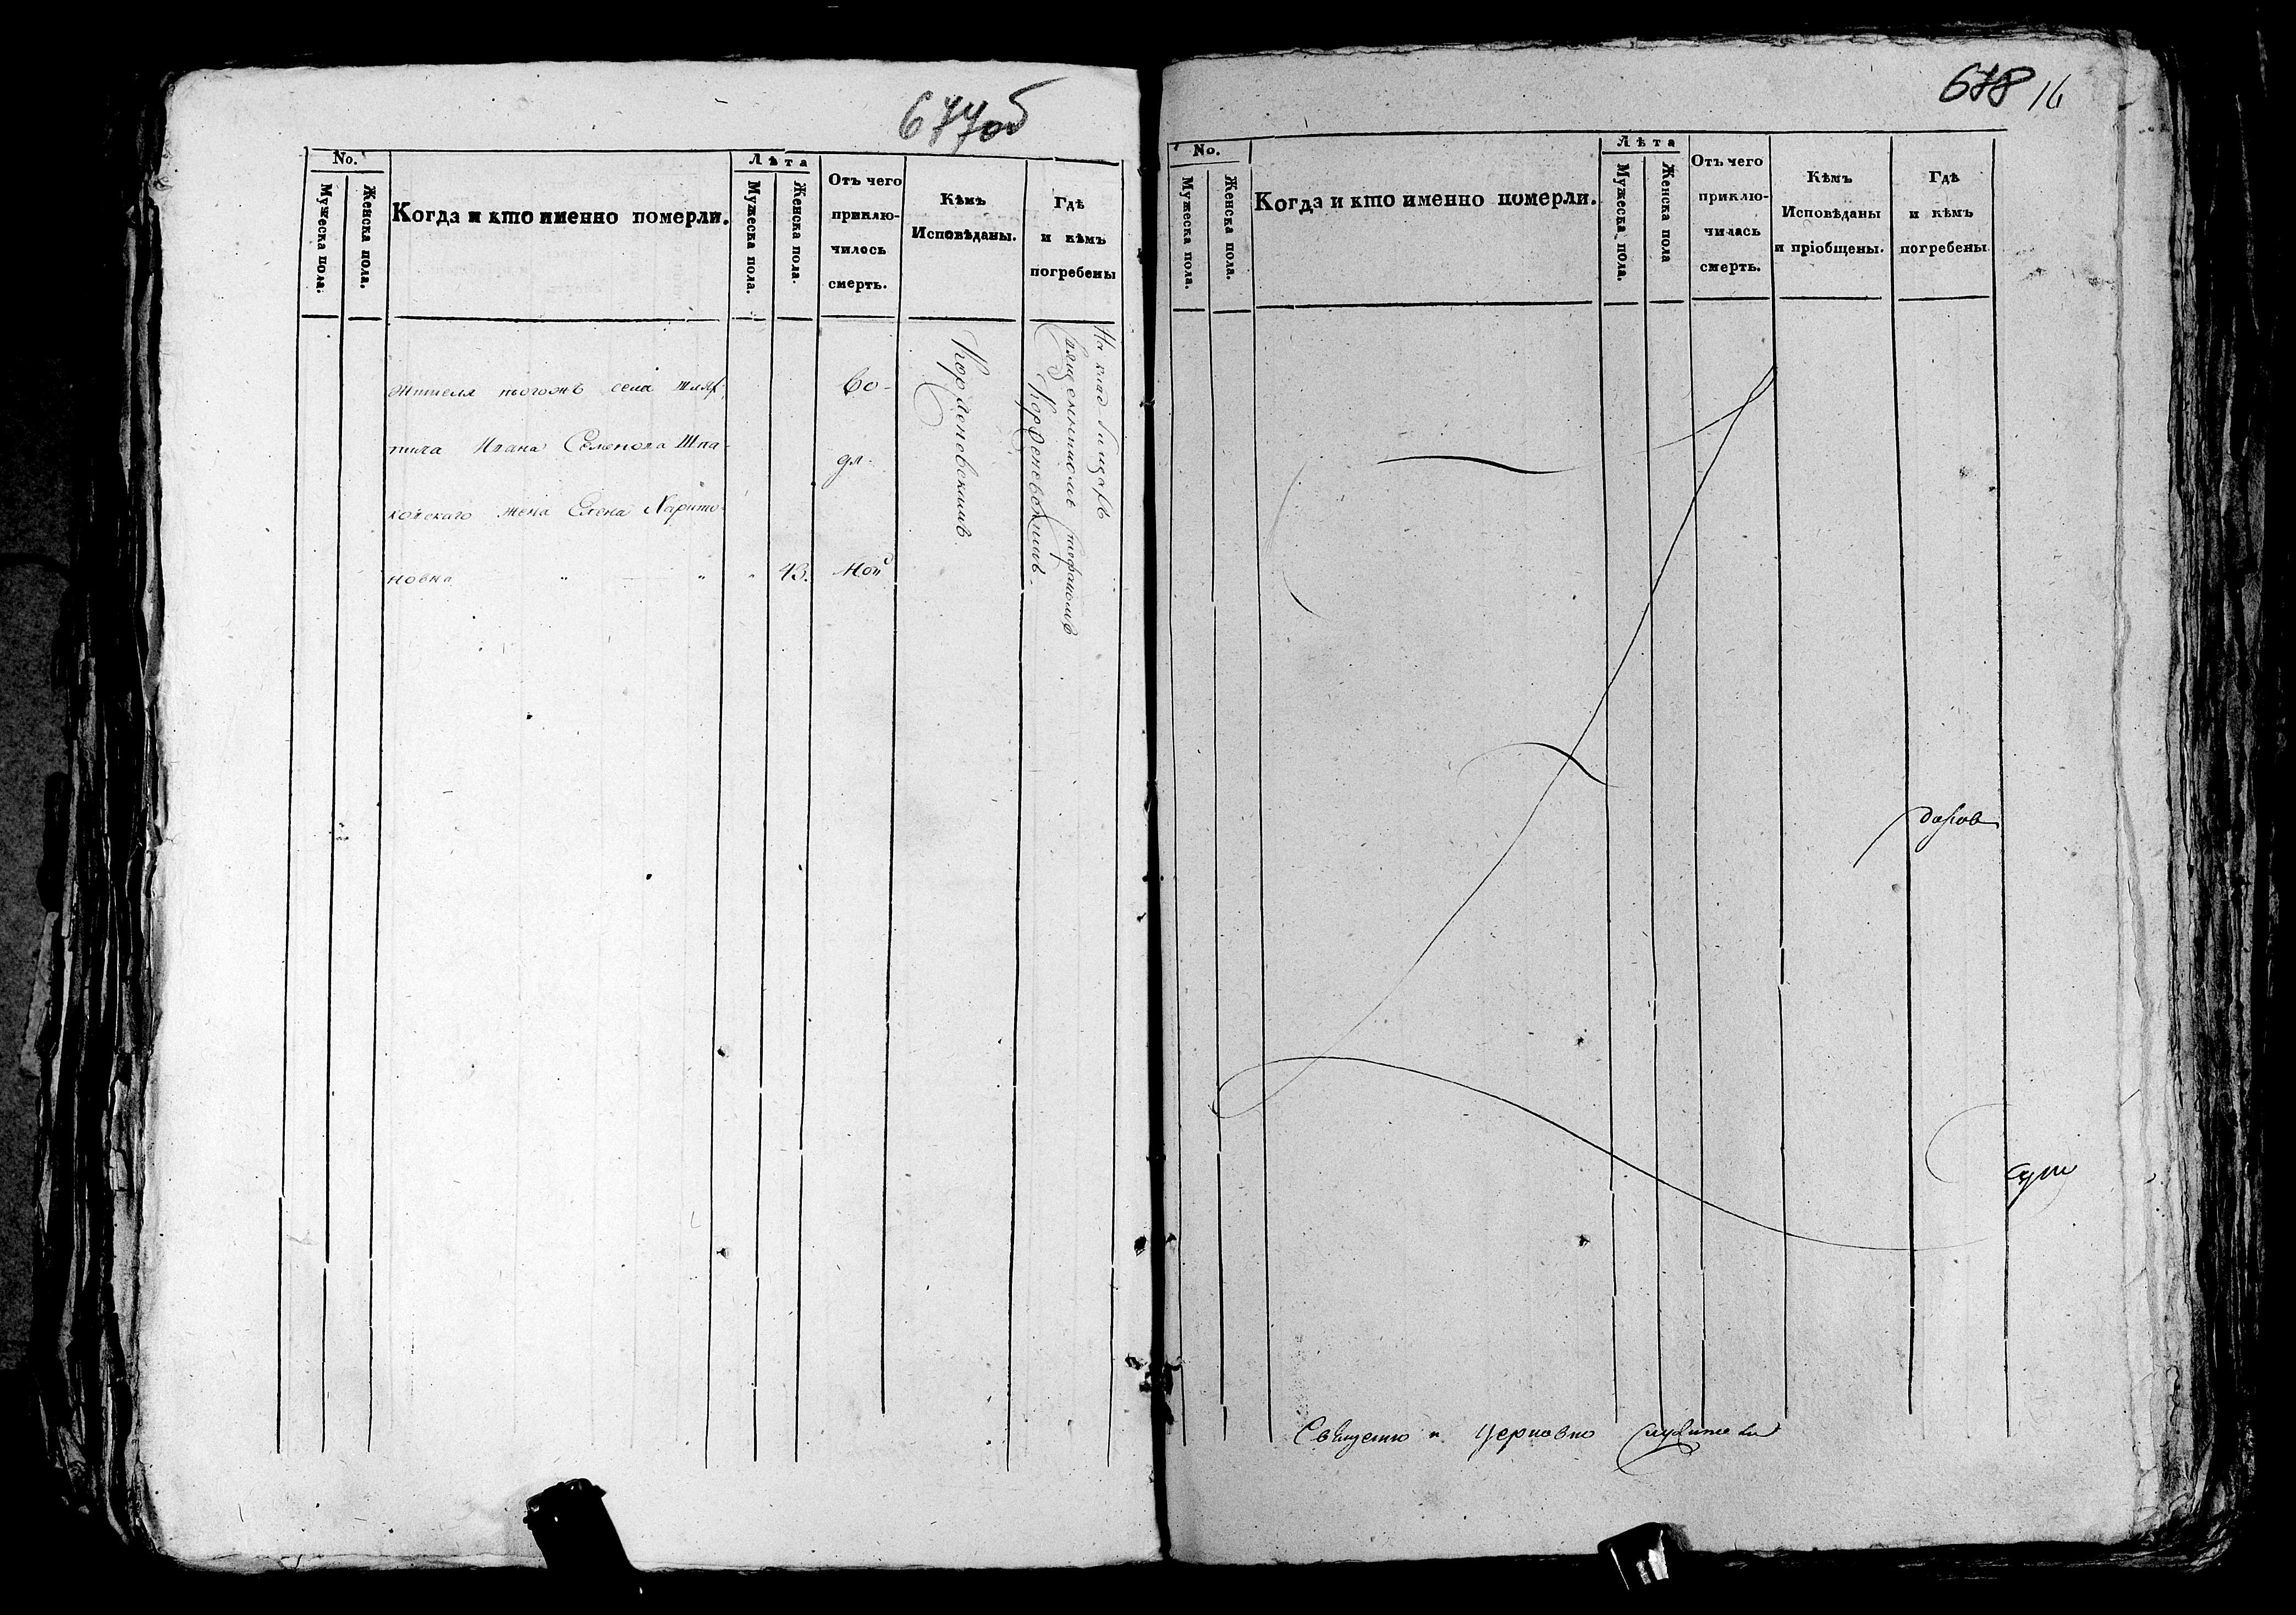 677об
No.
Мужеска пола.
Женска пола.
Когда и кто именно померли.
Лѣта
Мужеска пола.
Женска пола.
Отъ чего
приклю-
чилось
смерть.
Кѣмъ
Исповѣданы.
Гдѣ
и кѣмъ
погребены
жителя тогожъ села шлях
тича Ивана Семенова Шпа-
ковскаго жена Елена Харито-
новна " " " 43.
Во-
дя-
ной
Корденевскимъ
На кладбищѣ
священникомъ Стефаномъ
Корденевскимъ
678 16
No.
Мужеска пола.
Женска пола.
Когда и кто именно померли.
Лѣта
Мужеска пола.
Женска пола
Отъ чего
приклю-
чилась
смерть.
Кѣмъ
Исповѣданы
и пріобщены.
Гдѣ
и кѣмъ
погребены
Священно и Церковно служители